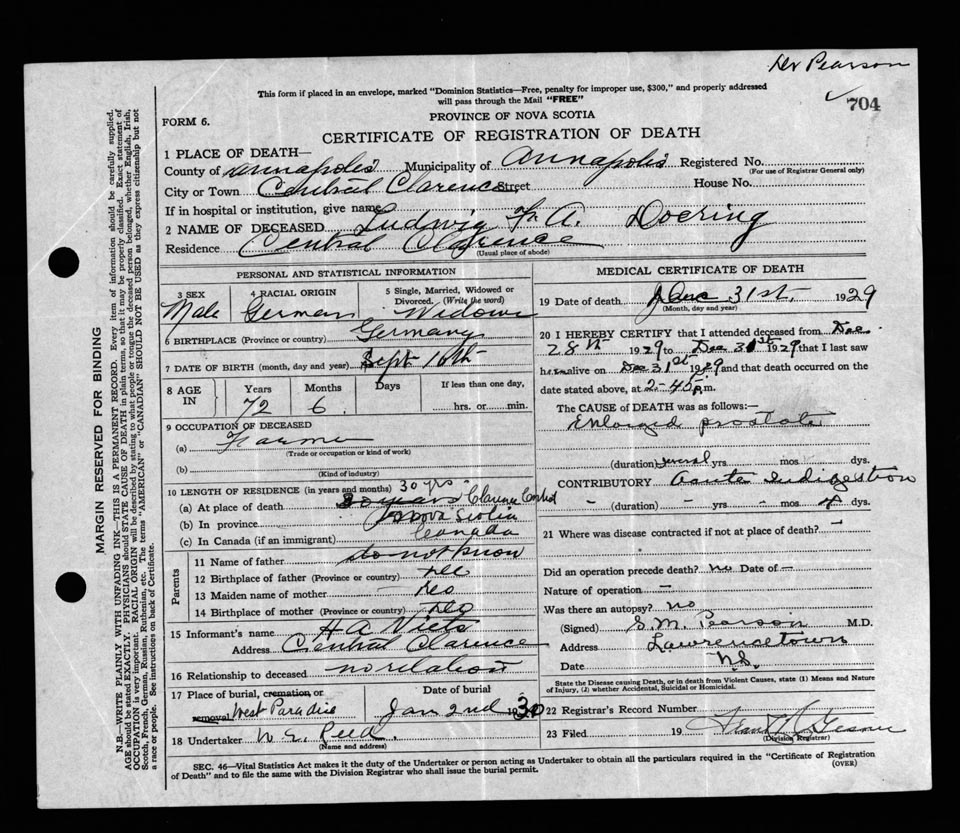 Dr Pearson
This form if placed in an envelope, marked "Dominion Statistics—Free, penalty for improper use, $300," and properly addressed
will pass through the Mail "FREE"
704
PROVINCE OF NOVA SCOTIA
FORM 6.
CERTIFICATE OF REGISTRATION OF DEATH
1 PLACE OF DEATH—
County of Annapolis Municipality of Annapolis Registered No.
(For use of Registrar General only)
City or Town Central Clarence Street House No.
If in hospital or institution, give name
2 NAME OF DECEASED Ludwig Fr A. Doering
Residence Central Clarence
(Usual place of abode)
PERSONAL AND STATISTICAL INFORMATION
3 SEX 4 RACIAL ORIGIN 5 Single, Married, Widowed or Divorced. (Write the word)
Male German Widower
6 BIRTHPLACE (Province or country) Germany
7 DATE OF BIRTH (month, day and year) Sept 16th
8 AGE IN Years Months Days If less than one day,
72 6 hrs. or min.
9 OCCUPATION OF DECEASED
(a) Farmer
(Trade or occupation or kind of work)
(b)
(Kind of industry)
10 LENGTH OF RESIDENCE (in years and months) 30 yrs
(a) At place of death 30 years Clarence Central
(b) In province Nova Scotia
(c) In Canada (if an immigrant) Canada
Parents
11 Name of father do not know
12 Birthplace of father (Province or country)
13 Maiden name of mother
14 Birthplace of mother (Province or country)
15 Informant's name H A Viets
Address Central Clarence
16 Relationship to deceased no relation
17 Place of burial, cremation, or removal West Paradise
Date of burial Jan 2nd 1930
18 Undertaker W E Reed.
(Name and address)
MEDICAL CERTIFICATE OF DEATH
19 Date of death Dec 31st. 1929
(Month, day and year)
20 I HEREBY CERTIFY that I attended deceased from Dec
28th 1929 to Dec 31st 1929 that I last saw
him alive on Dec 31st 1929 and that death occurred on the
date stated above, at 2-45 p.m.
The CAUSE OF DEATH was as follows:—
Enlarged prostate
(duration) several yrs. mos. dys.
CONTRIBUTORY Acute Indigestion
(duration) - yrs. - mos. 4 dys.
21 Where was disease contracted if not at place of death? —
Did an operation precede death? no Date of —
Nature of operation —
Was there an autopsy? no
(Signed) S. M. Pearson M.D.
Address Lawrencetown
Date N.S.
State the Disease causing Death, or in death from Violent Causes, state (1) Means and Nature
of Injury, (2) whether Accidental, Suicidal or Homicidal.
22 Registrar's Record Number
23 Filed 19
(Division Registrar)
SEC. 46—Vital Statistics Act makes it the duty of the Undertaker or person acting as Undertaker to obtain all the particulars required in the "Certificate of Registration
of Death" and to file the same with the Division Registrar who shall issue the burial permit.
(OVER)
MARGIN RESERVED FOR BINDING
N.B.—WRITE PLAINLY WITH UNFADING INK—THIS IS A PERMANENT RECORD. Every item of information should be carefully supplied.
AGE should be stated EXACTLY. PHYSICIANS should STATE CAUSE OF DEATH in plain terms, so that it may be properly classified. Exact statement of
OCCUPATION is very important. RACIAL ORIGIN will be described by stating to what people or tongue the deceased person belonged, whether English, Irish,
Scotch, French, German, Russian, Ruthenian, etc. The terms "AMERICAN" or "CANADIAN" SHOULD NOT BE USED as they express citizenship but not
a race or people. See instructions on back of Certificate.